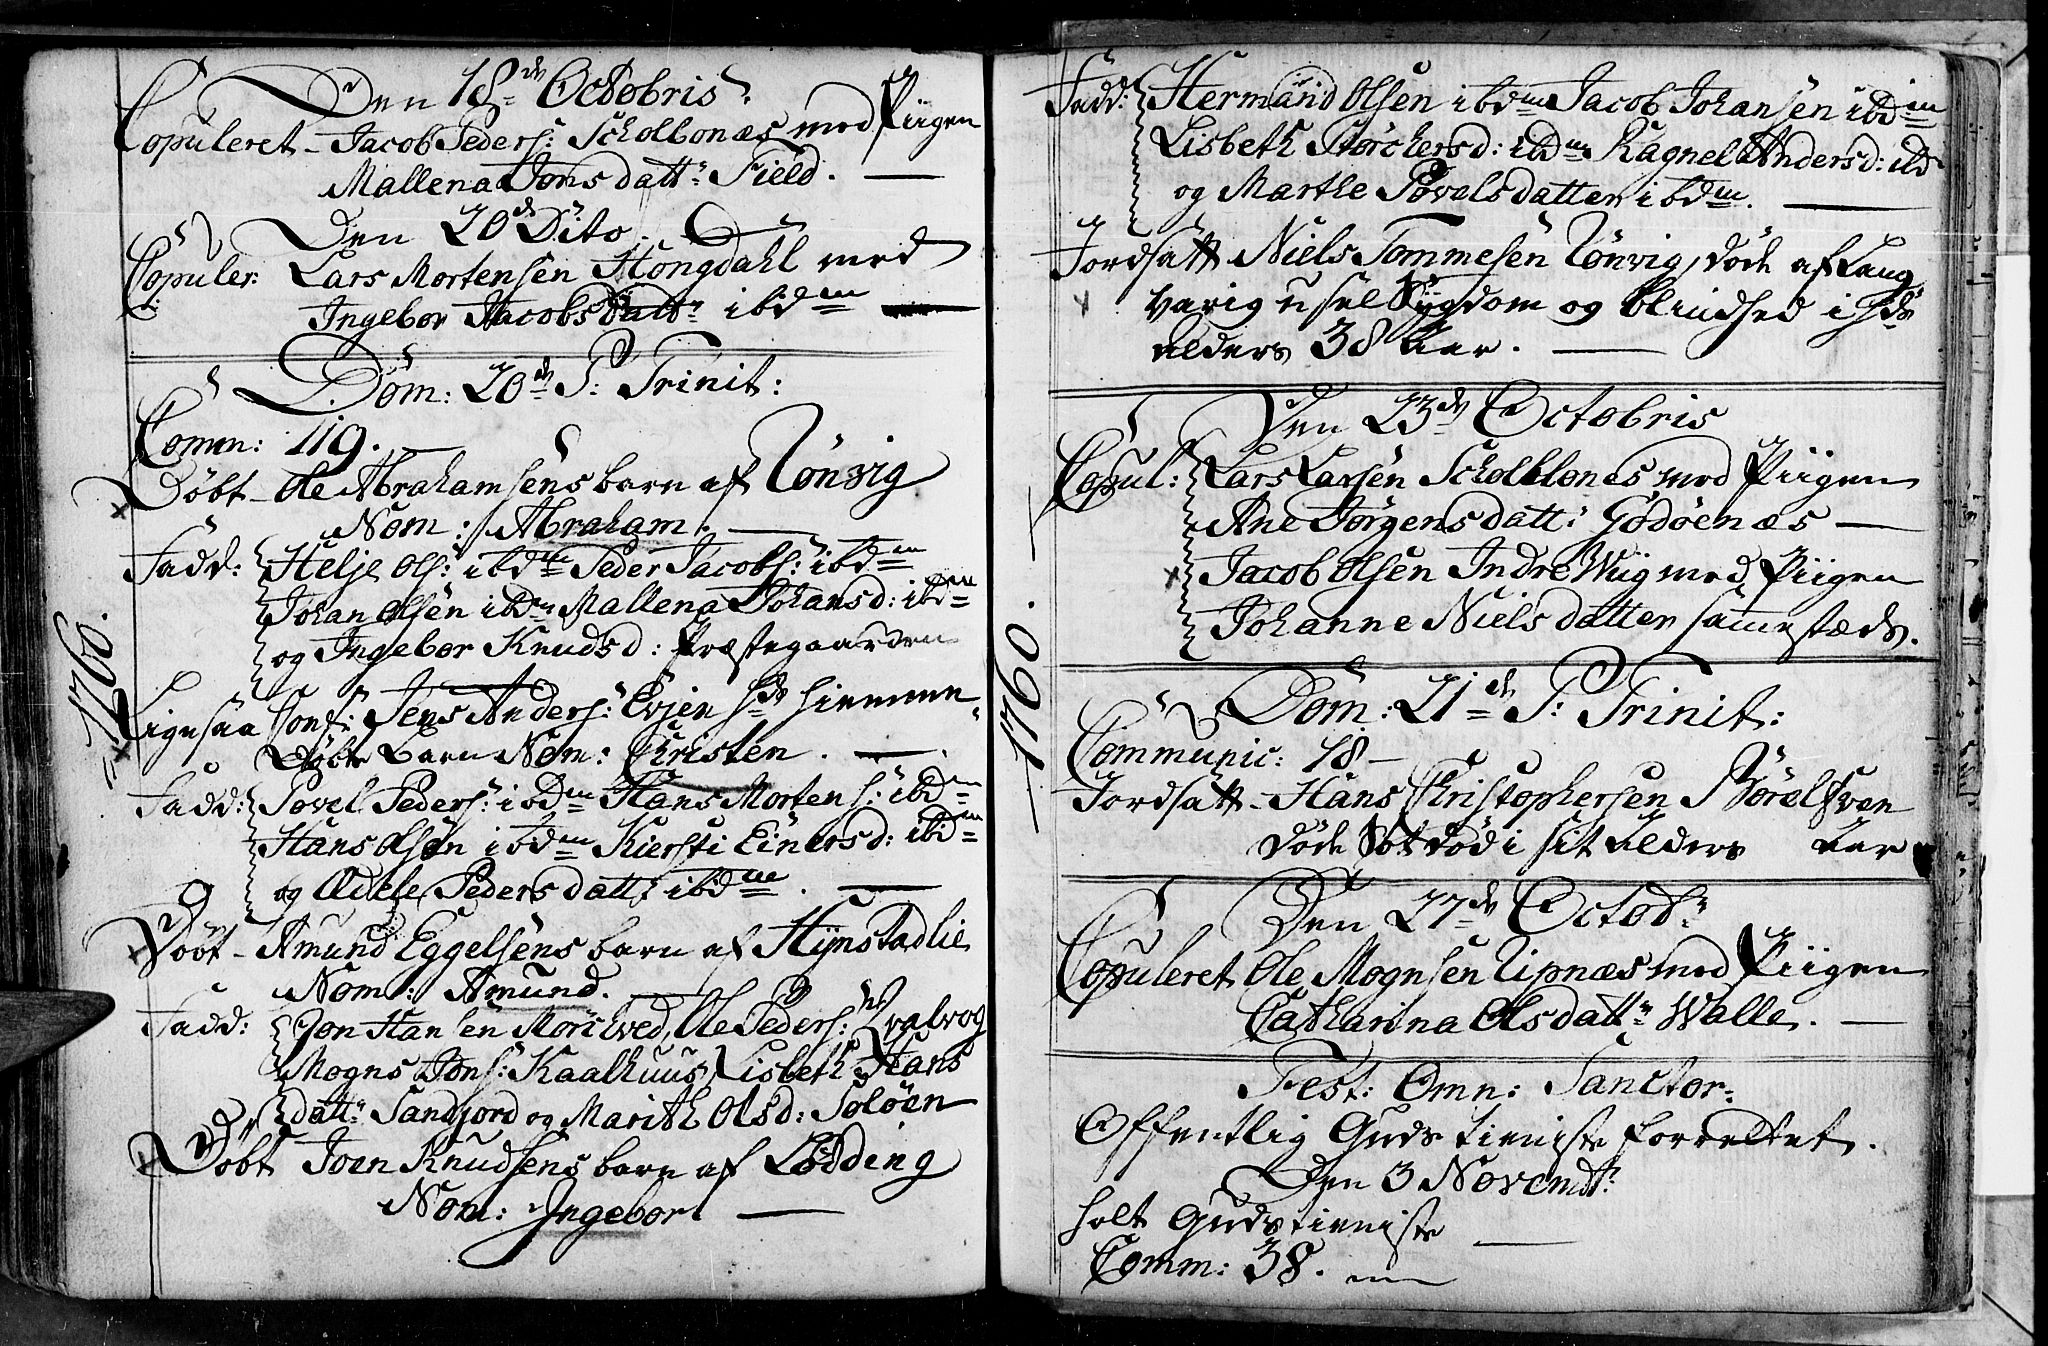 Den 18de Octobris
Copuleret - Jacob Peders: Scholbonæs med Piigen
Mallena Jons datt: Field.
Den 20de Dito.
Copuler: Lars Mortensen Hongdahl med
Ingebor Jacobs datt: ibdm
Dom: 20de P: Trinit:
Comm: 119.
Døbt - Ole Abrahamsens barn af Lønvig
Nom: Abraham.
Fadd: Helje Ols: ibdm Peder Jacobs: ibdm
Johan Olsen ibdm Mallena Johansd: ibdm
og Ingebor Knudsd: Præstegaarden
1760.
Ligesaa Conf: Jens Anders: Evjen hds hiemme-
døbte barn Nom: Christen.
Fadd: Povel Peders: ibdm Hans Mortens: ibdm
Hans Olsen ibdm Kiersti Einersd: ibdm
ogÆdele Pedersdatt: ibdm.
Døbt - Amund Eggelsens barn af Hynstadlie
Nom: Amund.
Fadd: Jon Hansen Mørchved, Ole Peders: Qvalvog
Mogns Jons: Kaalhuus, Lisbeth Hans
datt: Sandjord og Marith Olsd: Soløen
Døbt Joen Knudsens barn af Lødding
Nom: Ingebor
Fadd: Hermand Olsen ibdm Jacob Johansen ibdm
Lisbeth Størchersd: ibdm Ragnel Andersd: ibd
og Marthe Povelsdatter ibdm.
Jordsatt Niels Tommesen Lønvig, døde af Lang
varig usel Sygdom og blindhed i hds
alders 38 Aar.
Den 23de Octobris
Copul: Lars Larsen Scholblones med Piigen
Ane Jørgensdatt: Godøenæs
Jacob Olsen Indre Wiig med Piigen
Johanne Nielsdatter sammestæds.
1760.
Dom: 21de P: Trinit:
Communic: 18
Jordsatt - Hans Christophersen Børelfven
døde Sot død i sit Alders Aar
Den 27de Octob:
Copuleret Ole Mognsen Lipnæs med Piigen
Catharina Olsdatt: Walle.
Fest: Omn: Sanctor:
Offentlig Guds tieniste forrettet.
Den 3 Novemb:
holt Gudstieniste
Comm: 38.